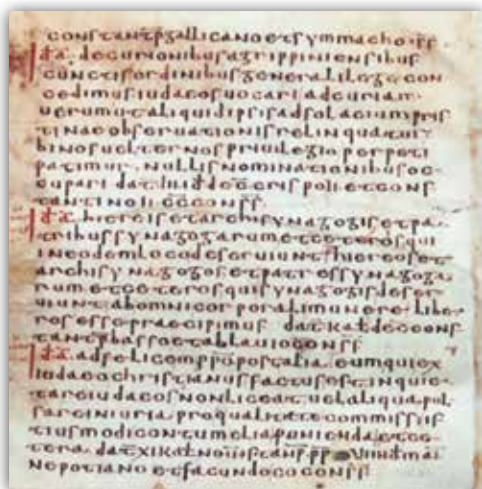 constantp gallicano et symmacho
id a. decurionibus agrippiniensibus
cunctis ordinibus generali lege con
cedimus iudaeos uocari ad curiam
uerum ut aliquid ipsis ad solacium pris
tinae obseruationis relinquatur
binos uel ternos priuilegio perpeti
patimur. nullis nominationibus oc
cupari dat iii id dec crispo ii et cons
tantino ii cc conss.
id a. hiereis et archisynagogis et pa
tribus synagogarum et ceteros qui
in eodem loco deseruiunt hiereos et
archisynagogos et patres synagoga
rum et ceteros qui synagogis deser
uiunt ab omni corporali munere libe
ros esse praecipimus dat kal dec cons
tantp basso et ablauio conss
id a. ad felicem ppo post alia. eum qui ex
iudaeo christianus factus est inquie
tare iudaeos non liceat uel aliqua pul
sare iniuria pro qualitate commissi is
tiusmodi contumelia punienda et ce
tera. dat xi kal pp uiii id mai
nepotiano et facundo conss